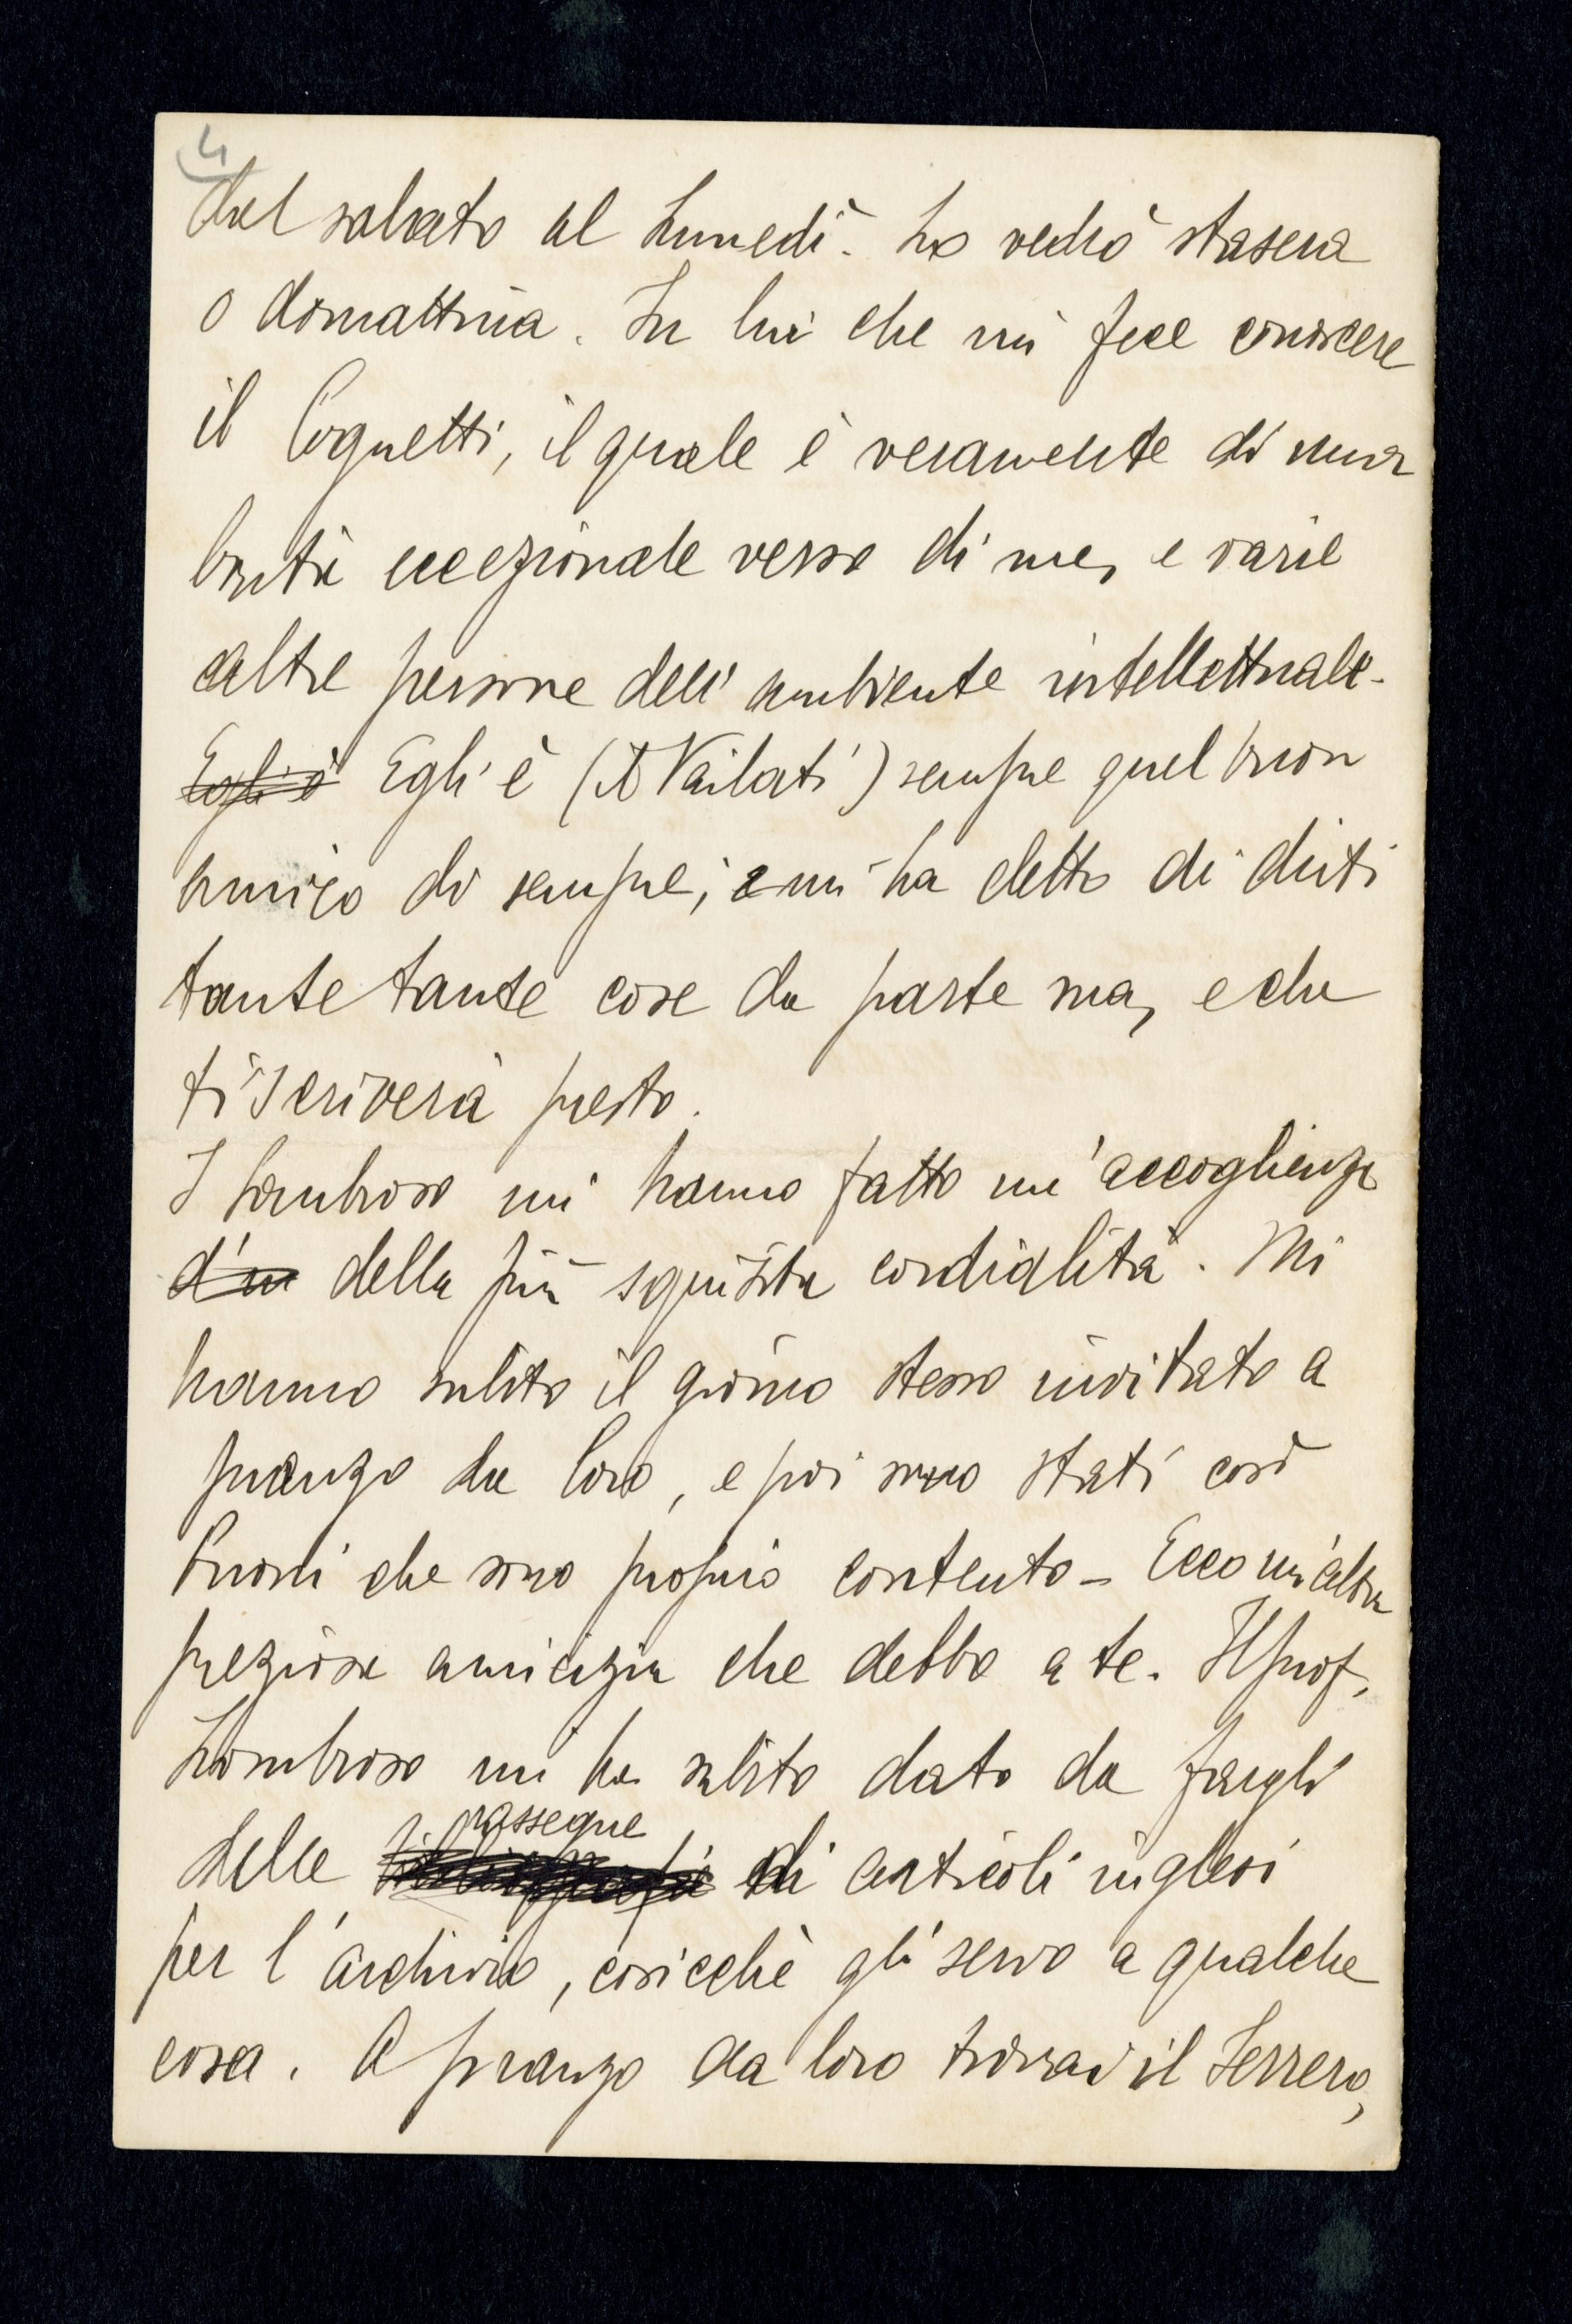 4
dal sabato al Lunedì. Lo vedrò stasera
o domattina. Fu lui che mi fece conoscere
il Cognetti, il quale è veramente di una
bontà eccezionale verso di me, e varie
altre persone dell'ambiente intellettuale.
Egli è Egli è (il Vailati) sempre quel buon
amico di sempre; e mi ha detto di dirti
tante tante cose da parte sua, e che
ti scriverà presto.
I Lombroso mi hanno fatto un'accoglienza
d'un della più squisita cordialità. Mi
hanno subito il giorno stesso invitato a
pranzo da loro, e poi sono stati così
buoni che sono proprio contento - Ecco un'altra
preziosa amicizia che debbo a te. Il prof.
Lombroso mi ha subito dato da fargli
rassegne
delle di articoli inglesi
per l'archivio, cosicchè gli servo a qualche
cosa. A pranzo da loro trovai il Ferrero,